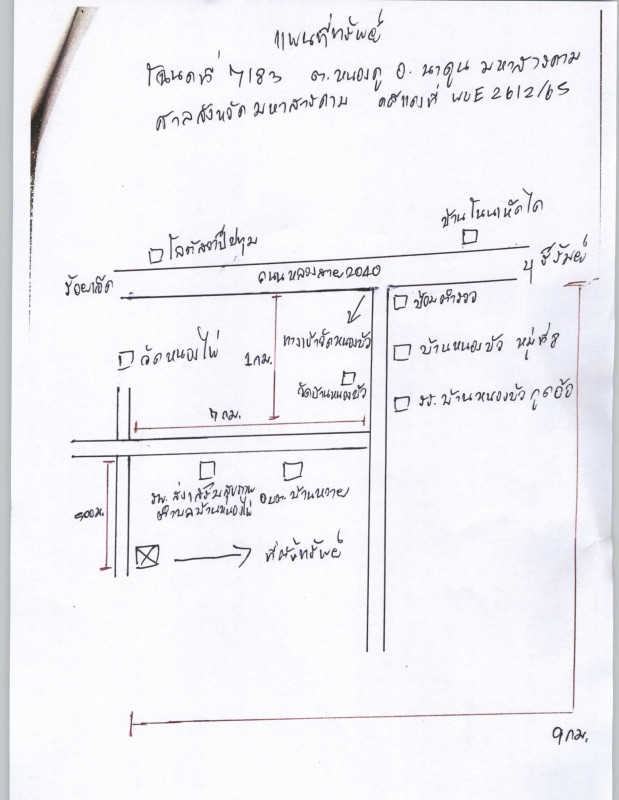 แผนที่ทรัพย์
โฉนดที่ 7183 ต.หนองคู อ. นาดูน มหาสารคาม
ศาลจังหวัดมหาสารคาม คดีแดงที่ ผบE 2612/65
บ้านโนนเห็ดไค
โลตัสวาปีปทุม
ถนนหลวงสาย 2040
ร้อยเอ็ด
ป้อมตำรวจ
ทางเข้าวัดหนองบัว
วัดหนองไผ่
1 กม.
บ้านหนองบัว หมู่ที่ 8
วัดบ้านหนองบัว
รร. บ้านหนองบัวกุดอ้อ
7 กม.
รพ. ส่งเสริมสุขภาพ
ตำบลบ้านหนองไผ่
อบต. บ้านหวาย
500 ม.
ที่ตั้งทรัพย์
9 กม.